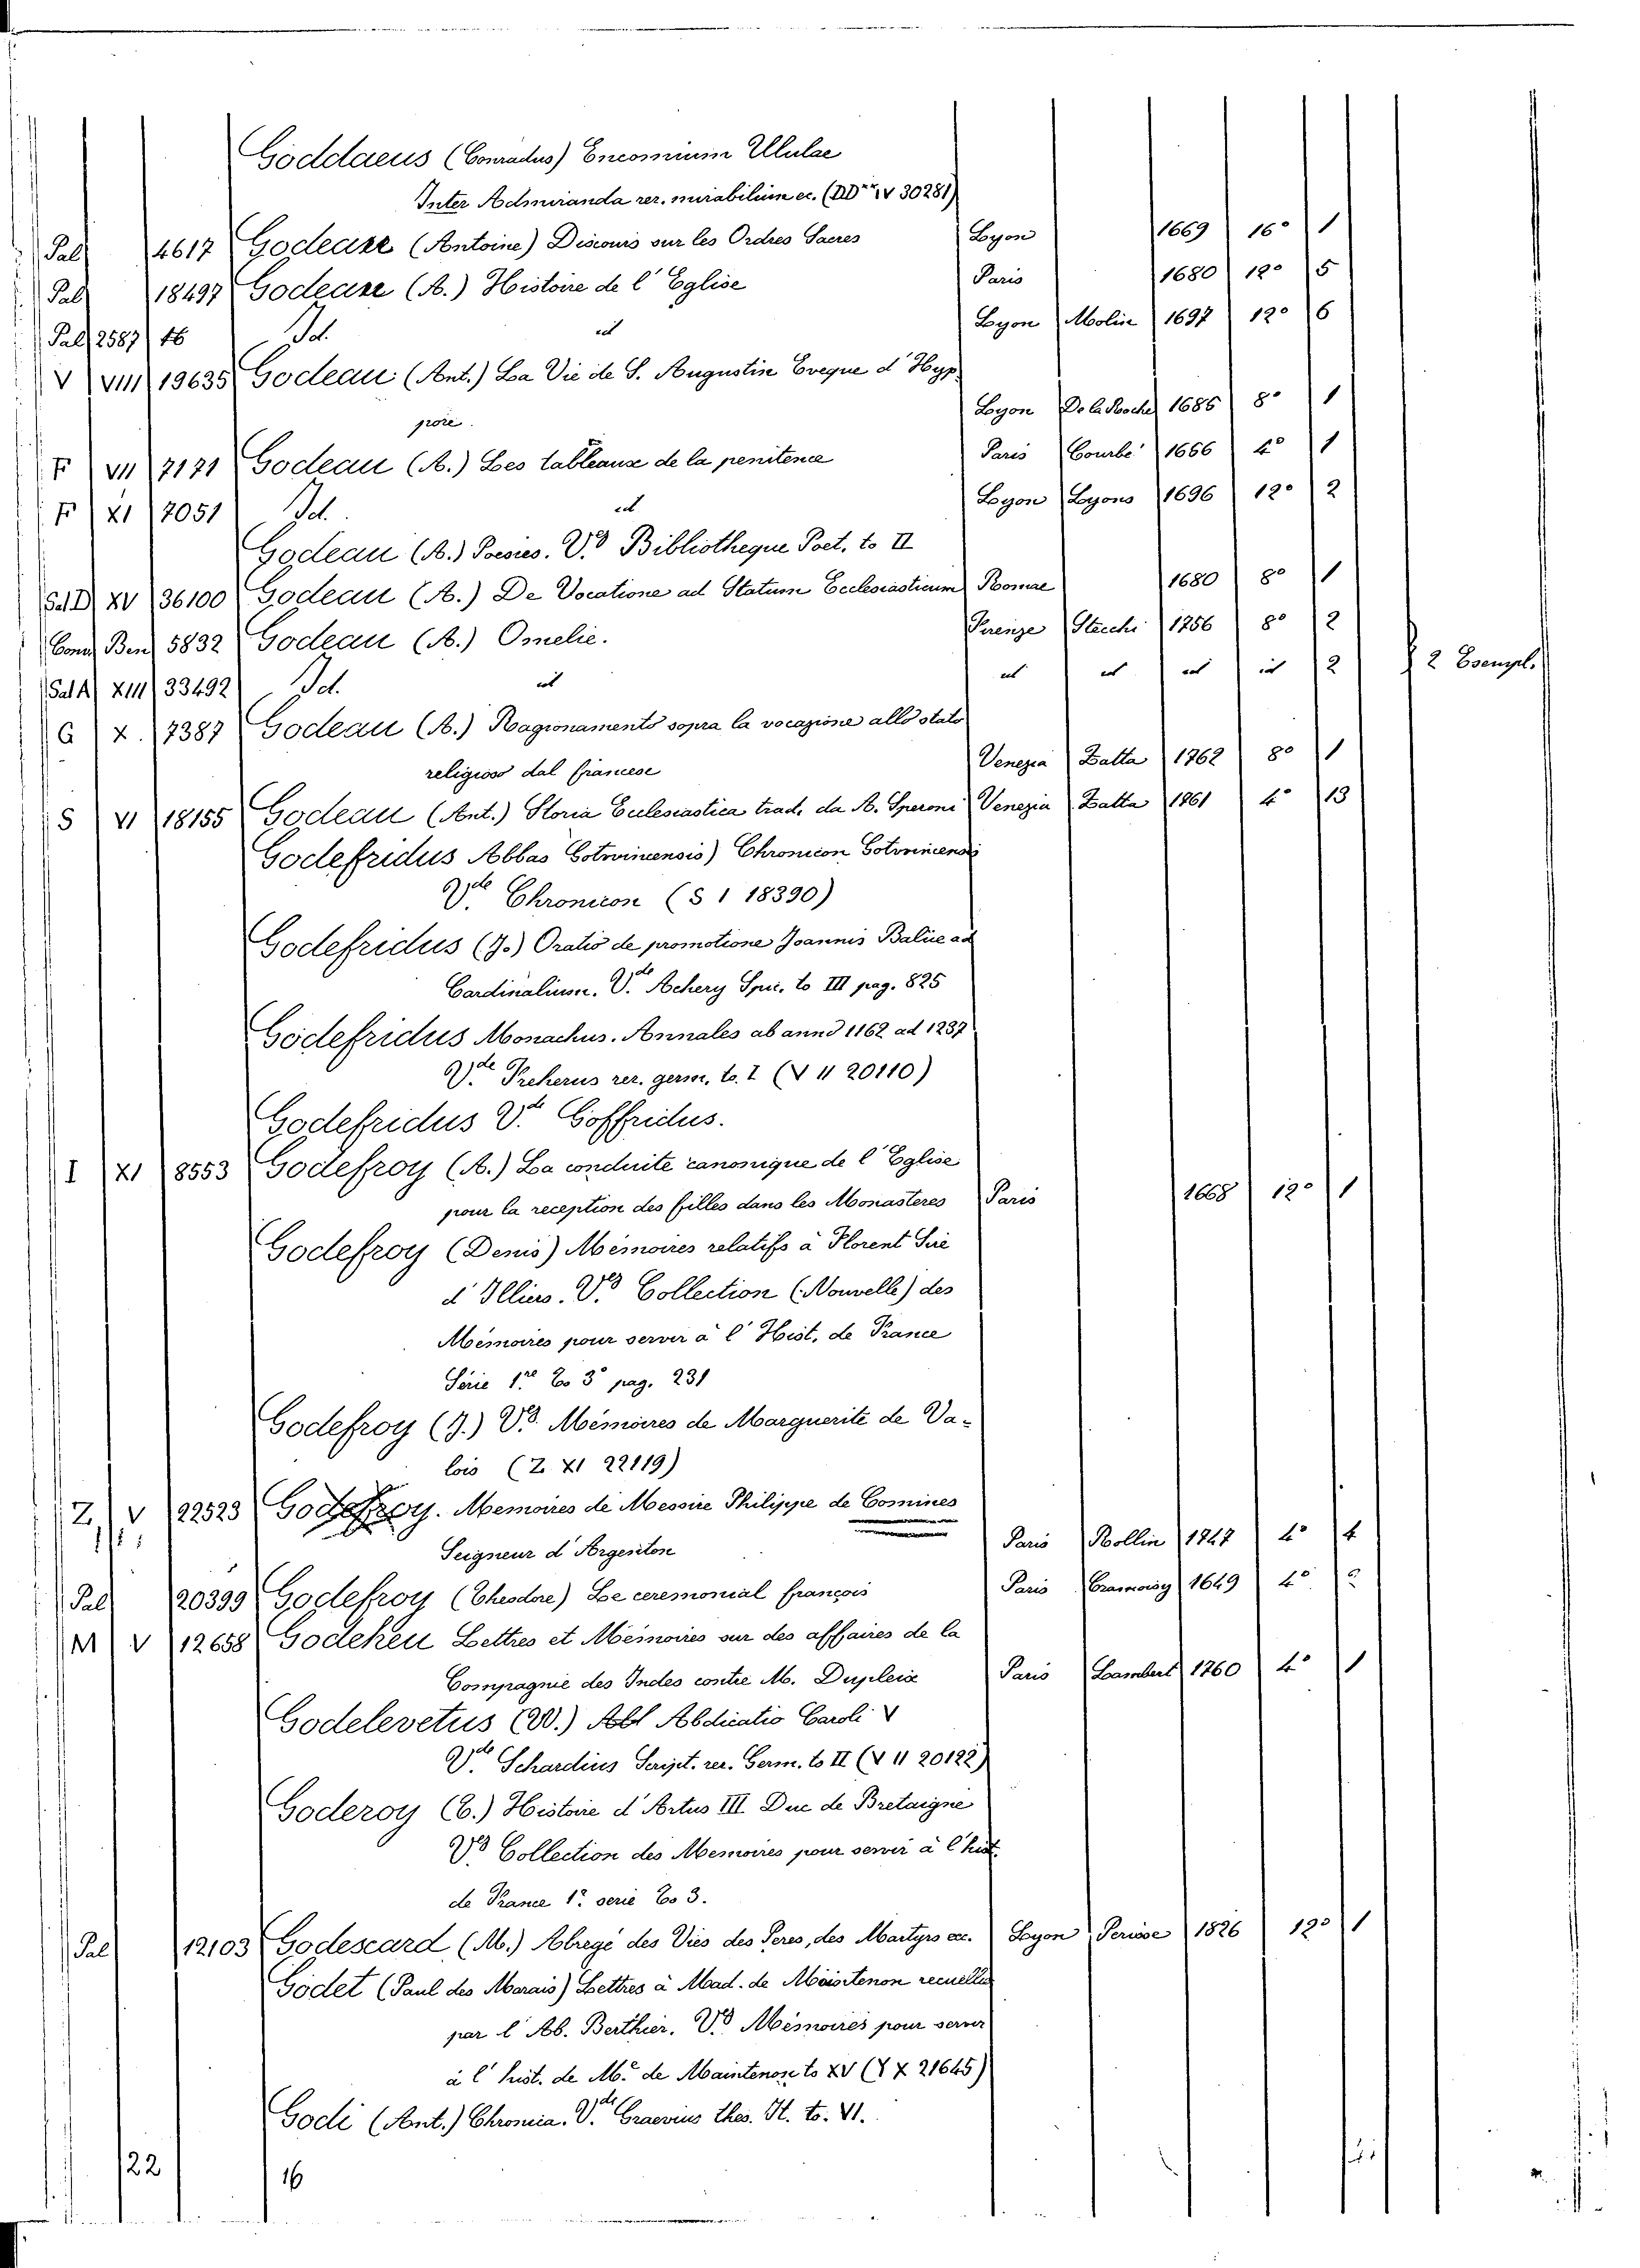 Goddaeus (Conradus) Encomium Ululae
Inter Admiranda rer. mirabilium ec. (DD IV 30281)
Pal 4617 Godeaux (Antoine) Discours sur les Ordres Sacres Lyon 1669 16° 1
Pal 18497 Godeaux (A.) Histoire de l'Eglise Paris 1680 12° 5
Pal 2587 46 Id. id Lyon Molin 1697 12° 6
V VIII 19635 Godeau (Ant.) La Vie de S. Augustin Eveque d'Hyp
pore. Lyon De la Roche 1685 8° 1
F VII 7171 Godeau (A.) Les tableaux de la penitence Paris Courbé 1656 4° 1
F XI 7051 Id. id Lyon Lyons 1696 12° 2
Godeau (A.) Poesies. V.d Bibliotheque Poet. to II
Sal D XV 36100 Godeau (A.) De Vocatione ad Statum Ecclesiasticum Romae 1680 8° 1
Conv Ben 5832 Godeau (A.) Omelie. Firenze Stecchi 1756 8° 2
Sal A XIII 33492 Id. id id id id id 2 2 Esempl.
G X. 7387 Godeau (A.) Ragionamento sopra la vocazione allo stato
religioso dal francese Venezia Zatta 1762 8° 1
S VI 18155 Godeau (Ant.) Storia Ecclesiastica trad. da A. Speroni Venezia Zatta 1761 4° 13
Godefridus Abbas Gotwicensis) Chronicon Gotvicensis
V.de Chronicon (S I 18390)
Godefridus (J.) Oratio de promotione Joannis Balue ad
Cardinalium. V.de Achery Spic. to III pag. 825
Godefridus Monachus. Annales ab anno 1162 ad 1237
V.de Freherus rer. germ. to. I (V II 20110)
Godefridus V.de Goffridus.
I XI 8553 Godefroy (A.) La conduite canonique de l'Eglise
pour la reception des filles dans les Monasteres Paris 1668 12° 1
Godefroy (Denis) Mémoires relatifs à Florent Sire
d'Illiers. V.d Collection (Nouvelle) des
Mémoires pour servir à l'Hist. de France
Série 1re to 3° pag. 231
Godefroy (J.) V.d Mémoires de Marguerite de Va-
lois (Z XI 22119)
Z V 22523 Godefroy. Memoires de Messire Philippe de Comines
Seigneur d'Argenton Paris Rollin 1747 4° 4
Pal 20399 Godefroy (Theodore) Le ceremonial françois Paris Cramoisy 1649 4° 2
M V 12658 Godeheu Lettres et Mémoires sur des affaires de la
Compagnie des Indes contre M. Dupleix Paris Lambert 1760 4° 1
Godelevetus (W.) Abdicatio Caroli V
V.de Schardius Script. rer. Germ. to II (V II 20122)
Goderoy (C.) Histoire d'Artus III Duc de Bretaigne
V.d Collection des Memoires pour servir à l'hist.
de France 1e serie to 3.
Pal 12103 Godescard (M.) Abregé des Vies des Peres, des Martyrs ec. Lyon Perisse 1826 12° 1
Godet (Paul des Marais) Lettres à Mad. de Maintenon recuellies
par l'Ab. Berthier. V.d Mémoires pour servir
à l'hist. de M.e de Maintenon to XV (Y X 21645)
Godi (Ant.) Chronica. V.de Graevius thes. It. to. VI.
22 16